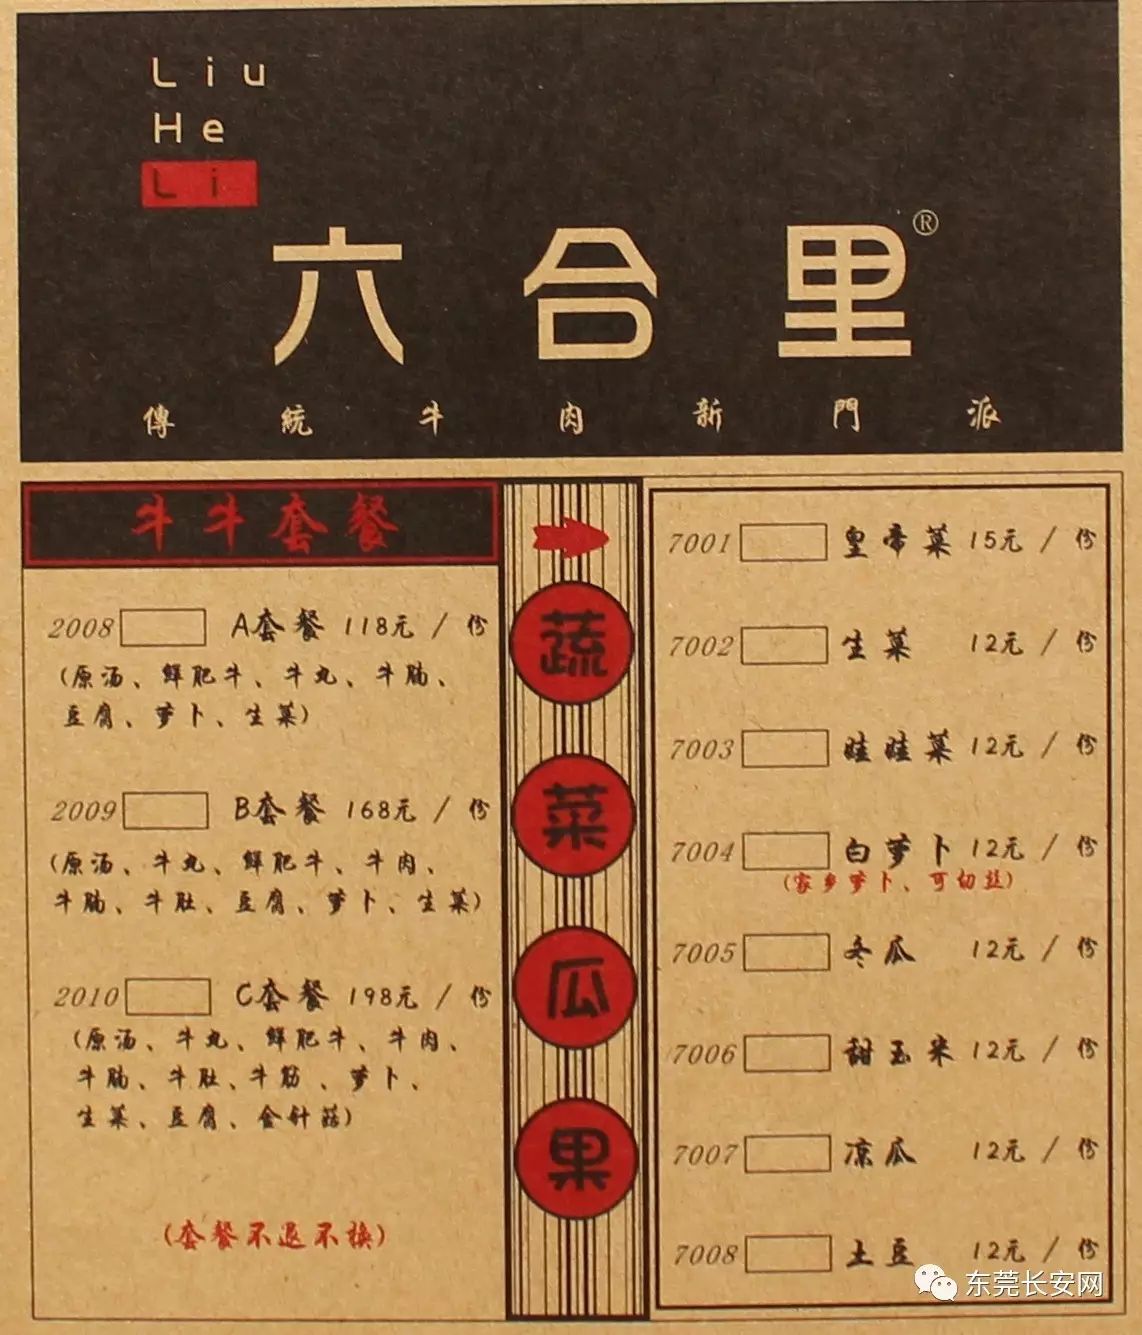 Liu
He
Li
六合里®
傳統牛肉新門派
牛牛套餐
2008 A套餐 118元 / 份
(原汤、鲜肥牛、牛丸、牛腩、
豆腐、萝卜、生菜)
2009 B套餐 168元 / 份
(原汤、牛丸、鲜肥牛、牛肉、
牛腩、牛肚、豆腐、萝卜、生菜)
2010 C套餐 198元 / 份
(原汤、牛丸、鲜肥牛、牛肉、
牛腩、牛肚、牛筋、萝卜、
生菜、豆腐、金针菇)
(套餐不退不换)
蔬
菜
瓜
果
7001 皇帝菜 15元 / 份
7002 生菜 12元 / 份
7003 娃娃菜 12元 / 份
7004 白萝卜 12元 / 份
(家乡萝卜、可切丝)
7005 冬瓜 12元 / 份
7006 甜玉米 12元 / 份
7007 凉瓜 12元 / 份
7008 土豆 12元 / 份
东莞长安网